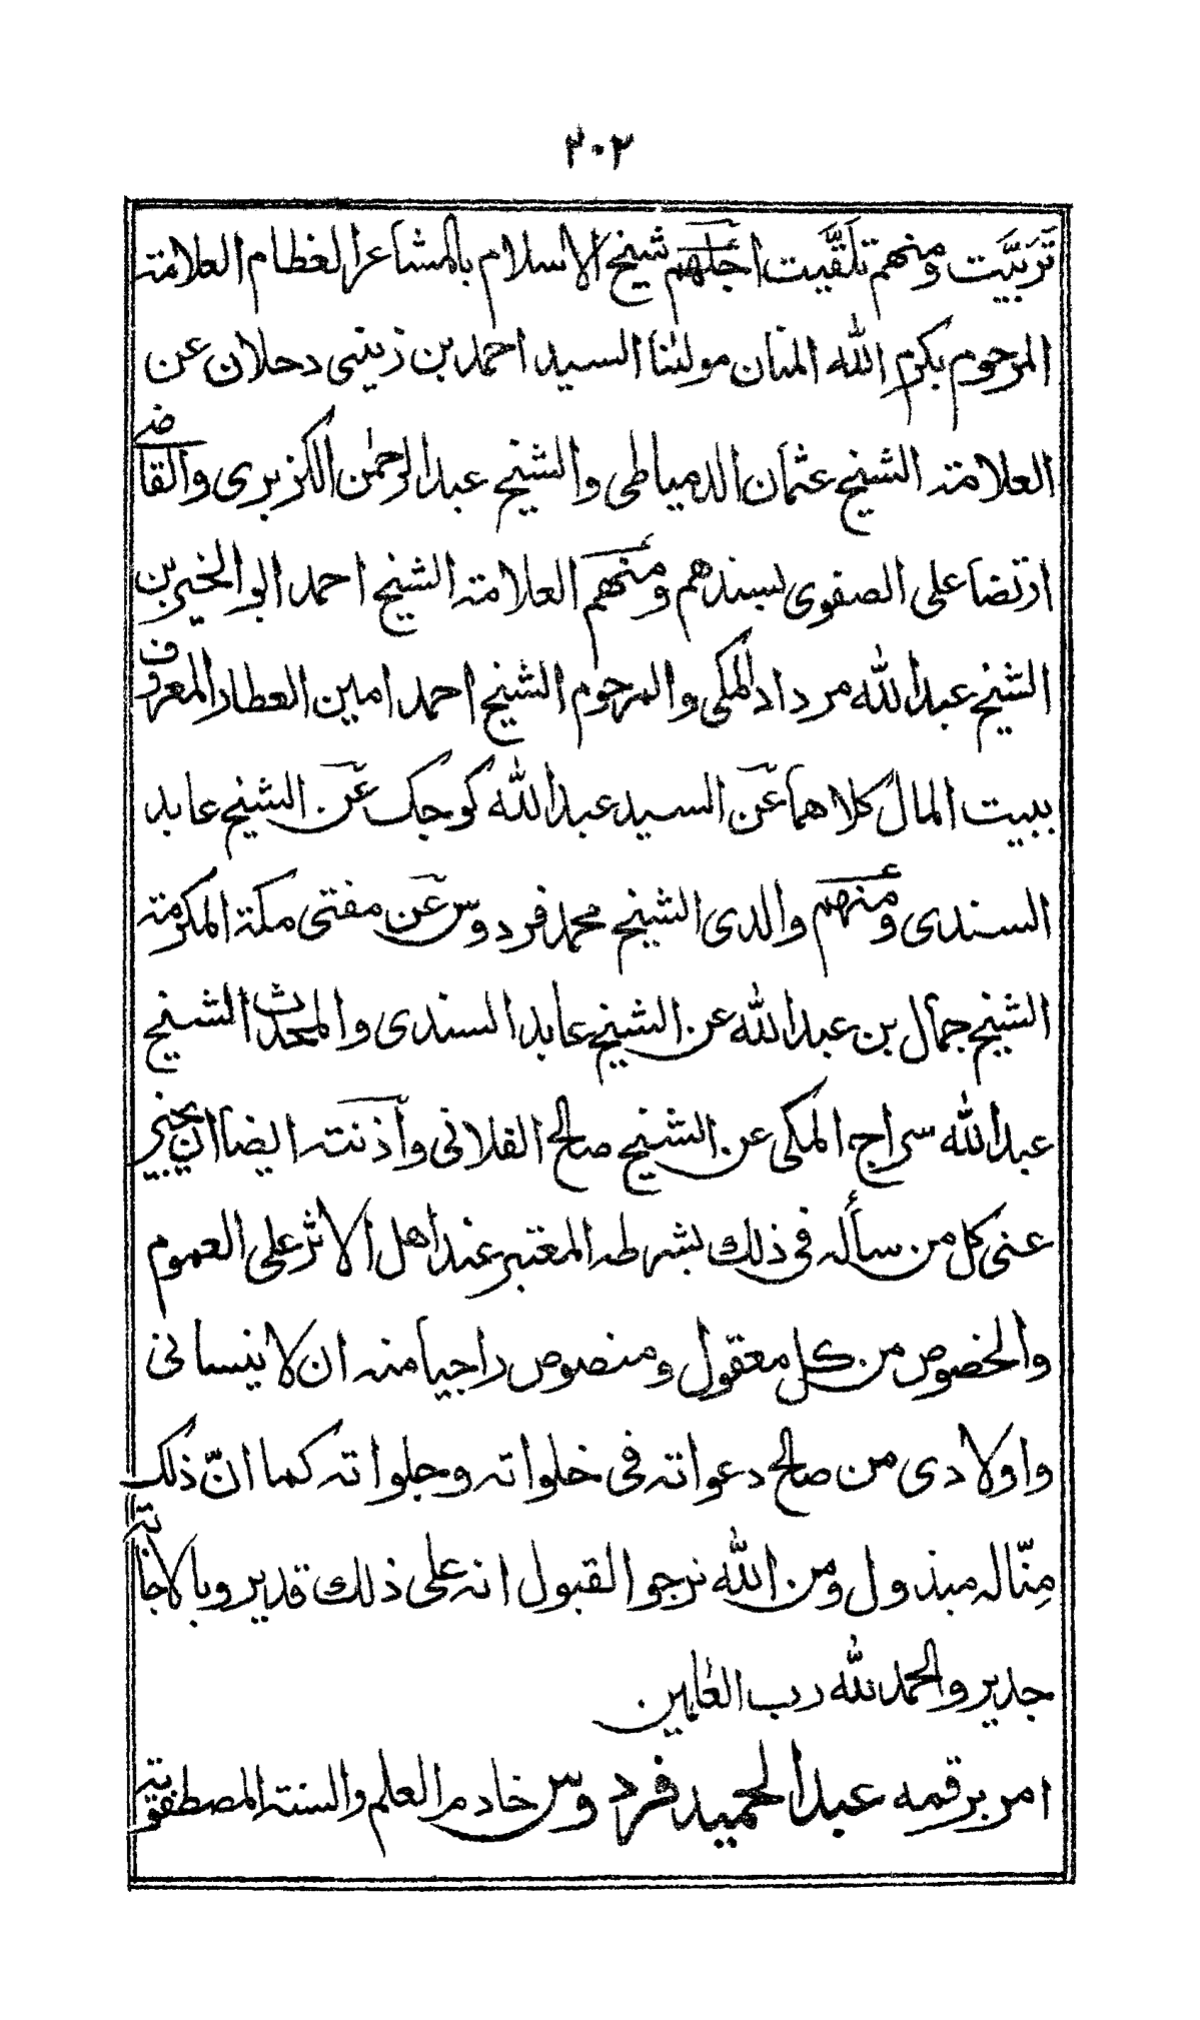 ٢٠٢
تَرَبَّيَت ومنهم تلقَّيت اجَلّهم شيخ الاسلام بالمشاعر العظام العلامة
المرحوم بكرم الله المنان مولٰنا السيد احمد بن زيني دحلان عن
العلامة الشيخ عثمان الدمياطي والشيخ عبد الرحمٰن الكزبرى والقاضي
ارتضا على الصفوى بسندهم ومنهم العلامة الشيخ احمد ابو الخير بن
الشيخ عبد الله مرداد المكي والمرحوم الشيخ احمد امين العطار المعروف
ببيت المال كلاهما عن السيد عبد الله كوجك عن الشيخ عابد
السندى ومنهم والدى الشيخ محمد فردوس عن مفتى مكة المكرمة
الشيخ جمال بن عبد الله عن الشيخ عابد السندى والمحدث الشيخ
عبد الله سراج المكي عن الشيخ صالح الفلانى وآذنته ايضا ان يجيز
عنى كل من سأله في ذلك بشرطه المعتبر عند اهل الاثر على العموم
والخصوص من كل معقول ومنصوص راجيا منه ان لا ينسانى
واولادى من صالح دعواته في خلواته وجلواته كما انّ ذلك
مِنّا له مبذول ومن الله نرجو القبول انه على ذلك قدير وبالاجابة
جدير والحمد لله رب العٰلمين
امر برقمه عبد الحميد فردوس خادم العلم والسنة المصطفوية